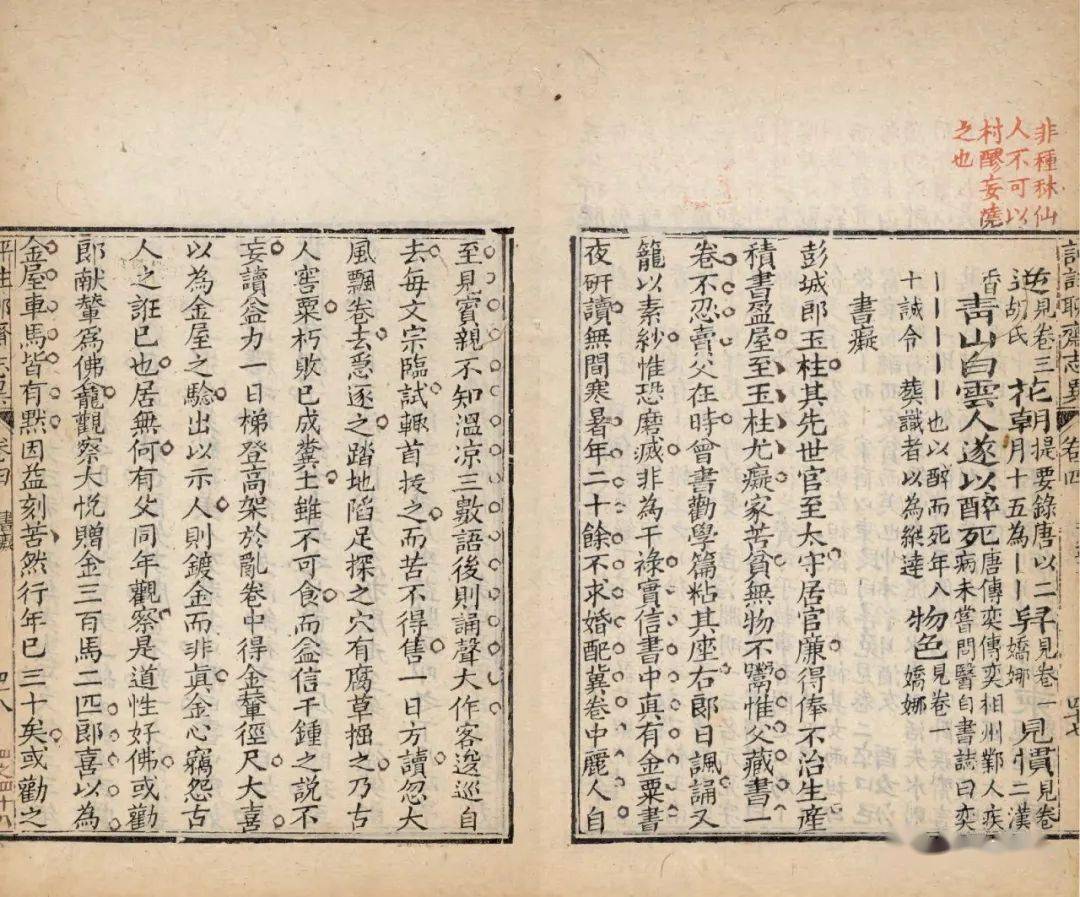 非種秫仙
人不可以
村醪妄澆
之也
詳註聊齋志異 卷四 四十七
逆見卷三胡氏 花朝提要錄唐以二月十五為丨丨 舅見卷一嬌娜 見慣見卷二蓮
香 青山白雲人遂以醉死唐傳奕傳奕相州鄴人疾病未嘗問醫自書誌曰奕
丨丨丨丨丨也以醉而死年八十誡令 葬識者以為縱達 物色見卷一嬌娜
書癡
彭城郎玉柱其先世官至太守居官廉得俸不治生産
積書盈屋至玉柱尤癡家苦貧無物不鬻惟父藏書一
卷不忍賣父在時曾書勸學篇粘其座右郎日諷誦又
籠以素紗惟恐磨滅非為干祿實信書中真有金粟書
夜研讀無間寒暑年二十餘不求婚配冀卷中麗人自
至見賓親不知溫凉三數語後則誦聲大作客逡巡自
去每文宗臨試輙首拔之而苦不得售一日方讀忽大
風飄卷去急逐之踏地陷足探之穴有腐草掘之乃古
人窖粟朽敗已成糞土雖不可食而益信千鍾之說不
妄讀益力一日梯登高架於亂卷中得金輦徑尺大喜
以為金屋之驗出以示人則鍍金而非真金心竊怨古
人之誑已也居無何有父同年觀察是道性好佛或勸
郎献輦為佛龕觀察大悅贈金三百馬二匹郎喜以為
金屋車馬皆有㸃因益刻苦然行年已三十矣或勸之
評註聊齋志異 卷四 書癡 四八